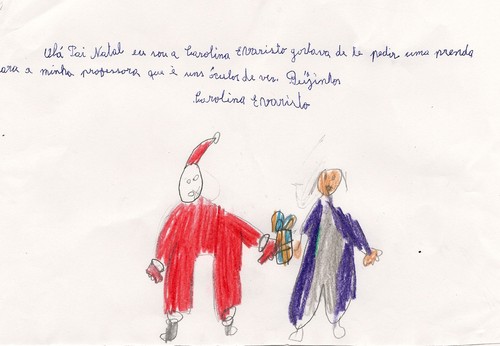 Olá Pai Natal eu sou a Carolina Evaristo gostava de te pedir uma prenda
para a minha professora que é uns óculos de ver. Beijinhos
Carolina Evaristo